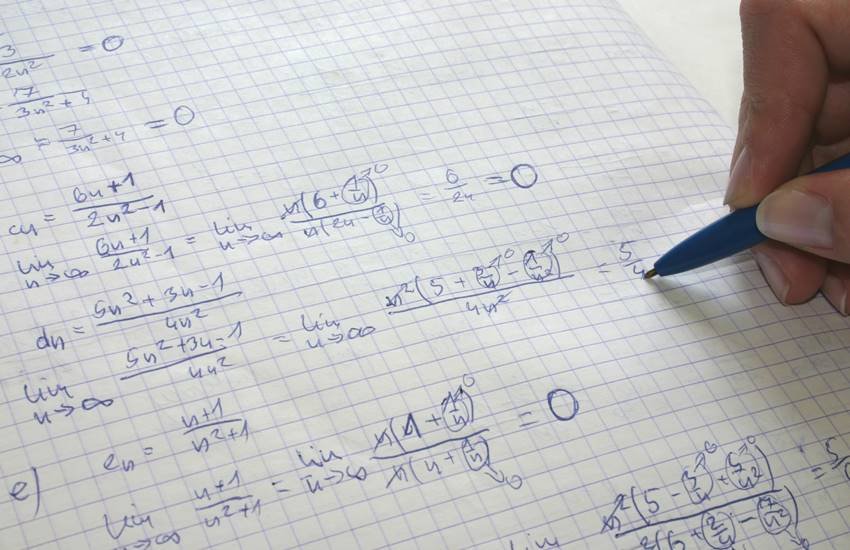 3/2n² = 0
7/3n²+4
∞ = 7/3n²+4 = 0
cn = 6n+1/2n²-1
lim n→∞ 6n+1/2n²-1 = lim n→∞ n(6 + 1/n →0)/n(2n - 1/n →0) = 6/2n = 0
dn = 5n² + 3n - 1/4n²
lim n→∞ 5n²+3n-1/4n² = lim n→∞ n²(5 + 3/n →0 - 1/n² →0)/4n² = 5/4
en = n+1/n²+1
e) lim n→∞ n+1/n²+1 = lim n→∞ n(1 + 1/n →0)/n(n + 1/n →0) = 0
lim n²(5 - 3/n →0 + 5/n² →0)/n²(6 + 2/n - 7/n² →0) = 5/